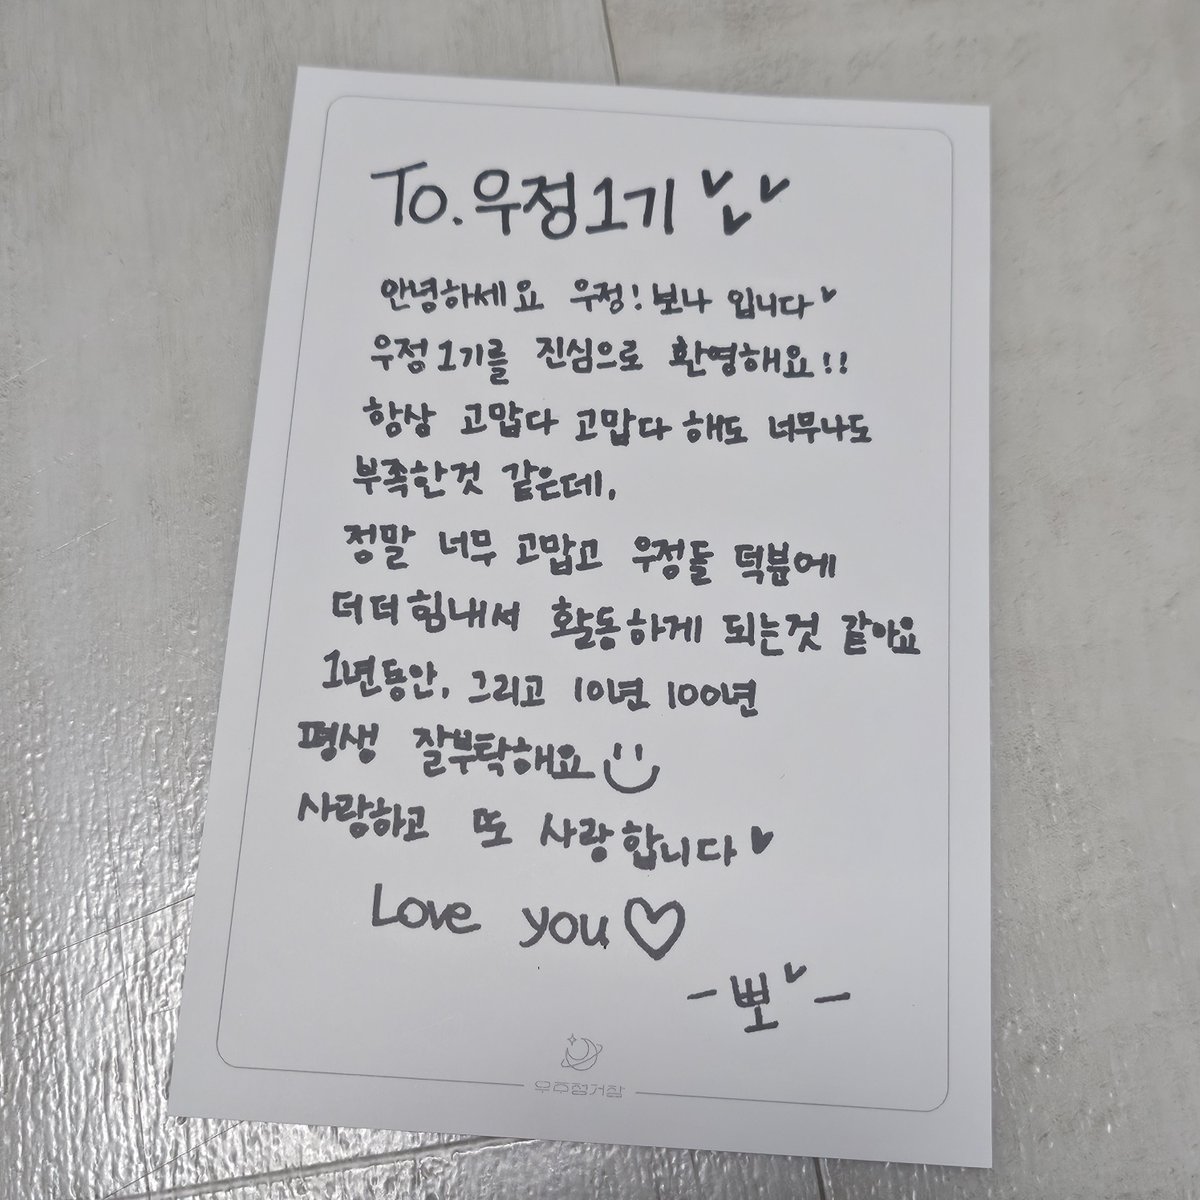 To. 우정 1기
안녕하세요 우정! 보나 입니다
우정 1기를 진심으로 환영해요!!
항상 고맙다 고맙다 해도 너무나도
부족한것 같은데,
정말 너무 고맙고 우정들 덕분에
더더 힘내서 활동하게 되는것 같아요
1년동안, 그리고 10년 100년
평생 잘부탁해요
사랑하고 또 사랑합니다
Love you
- 뽀 -
우주정거장